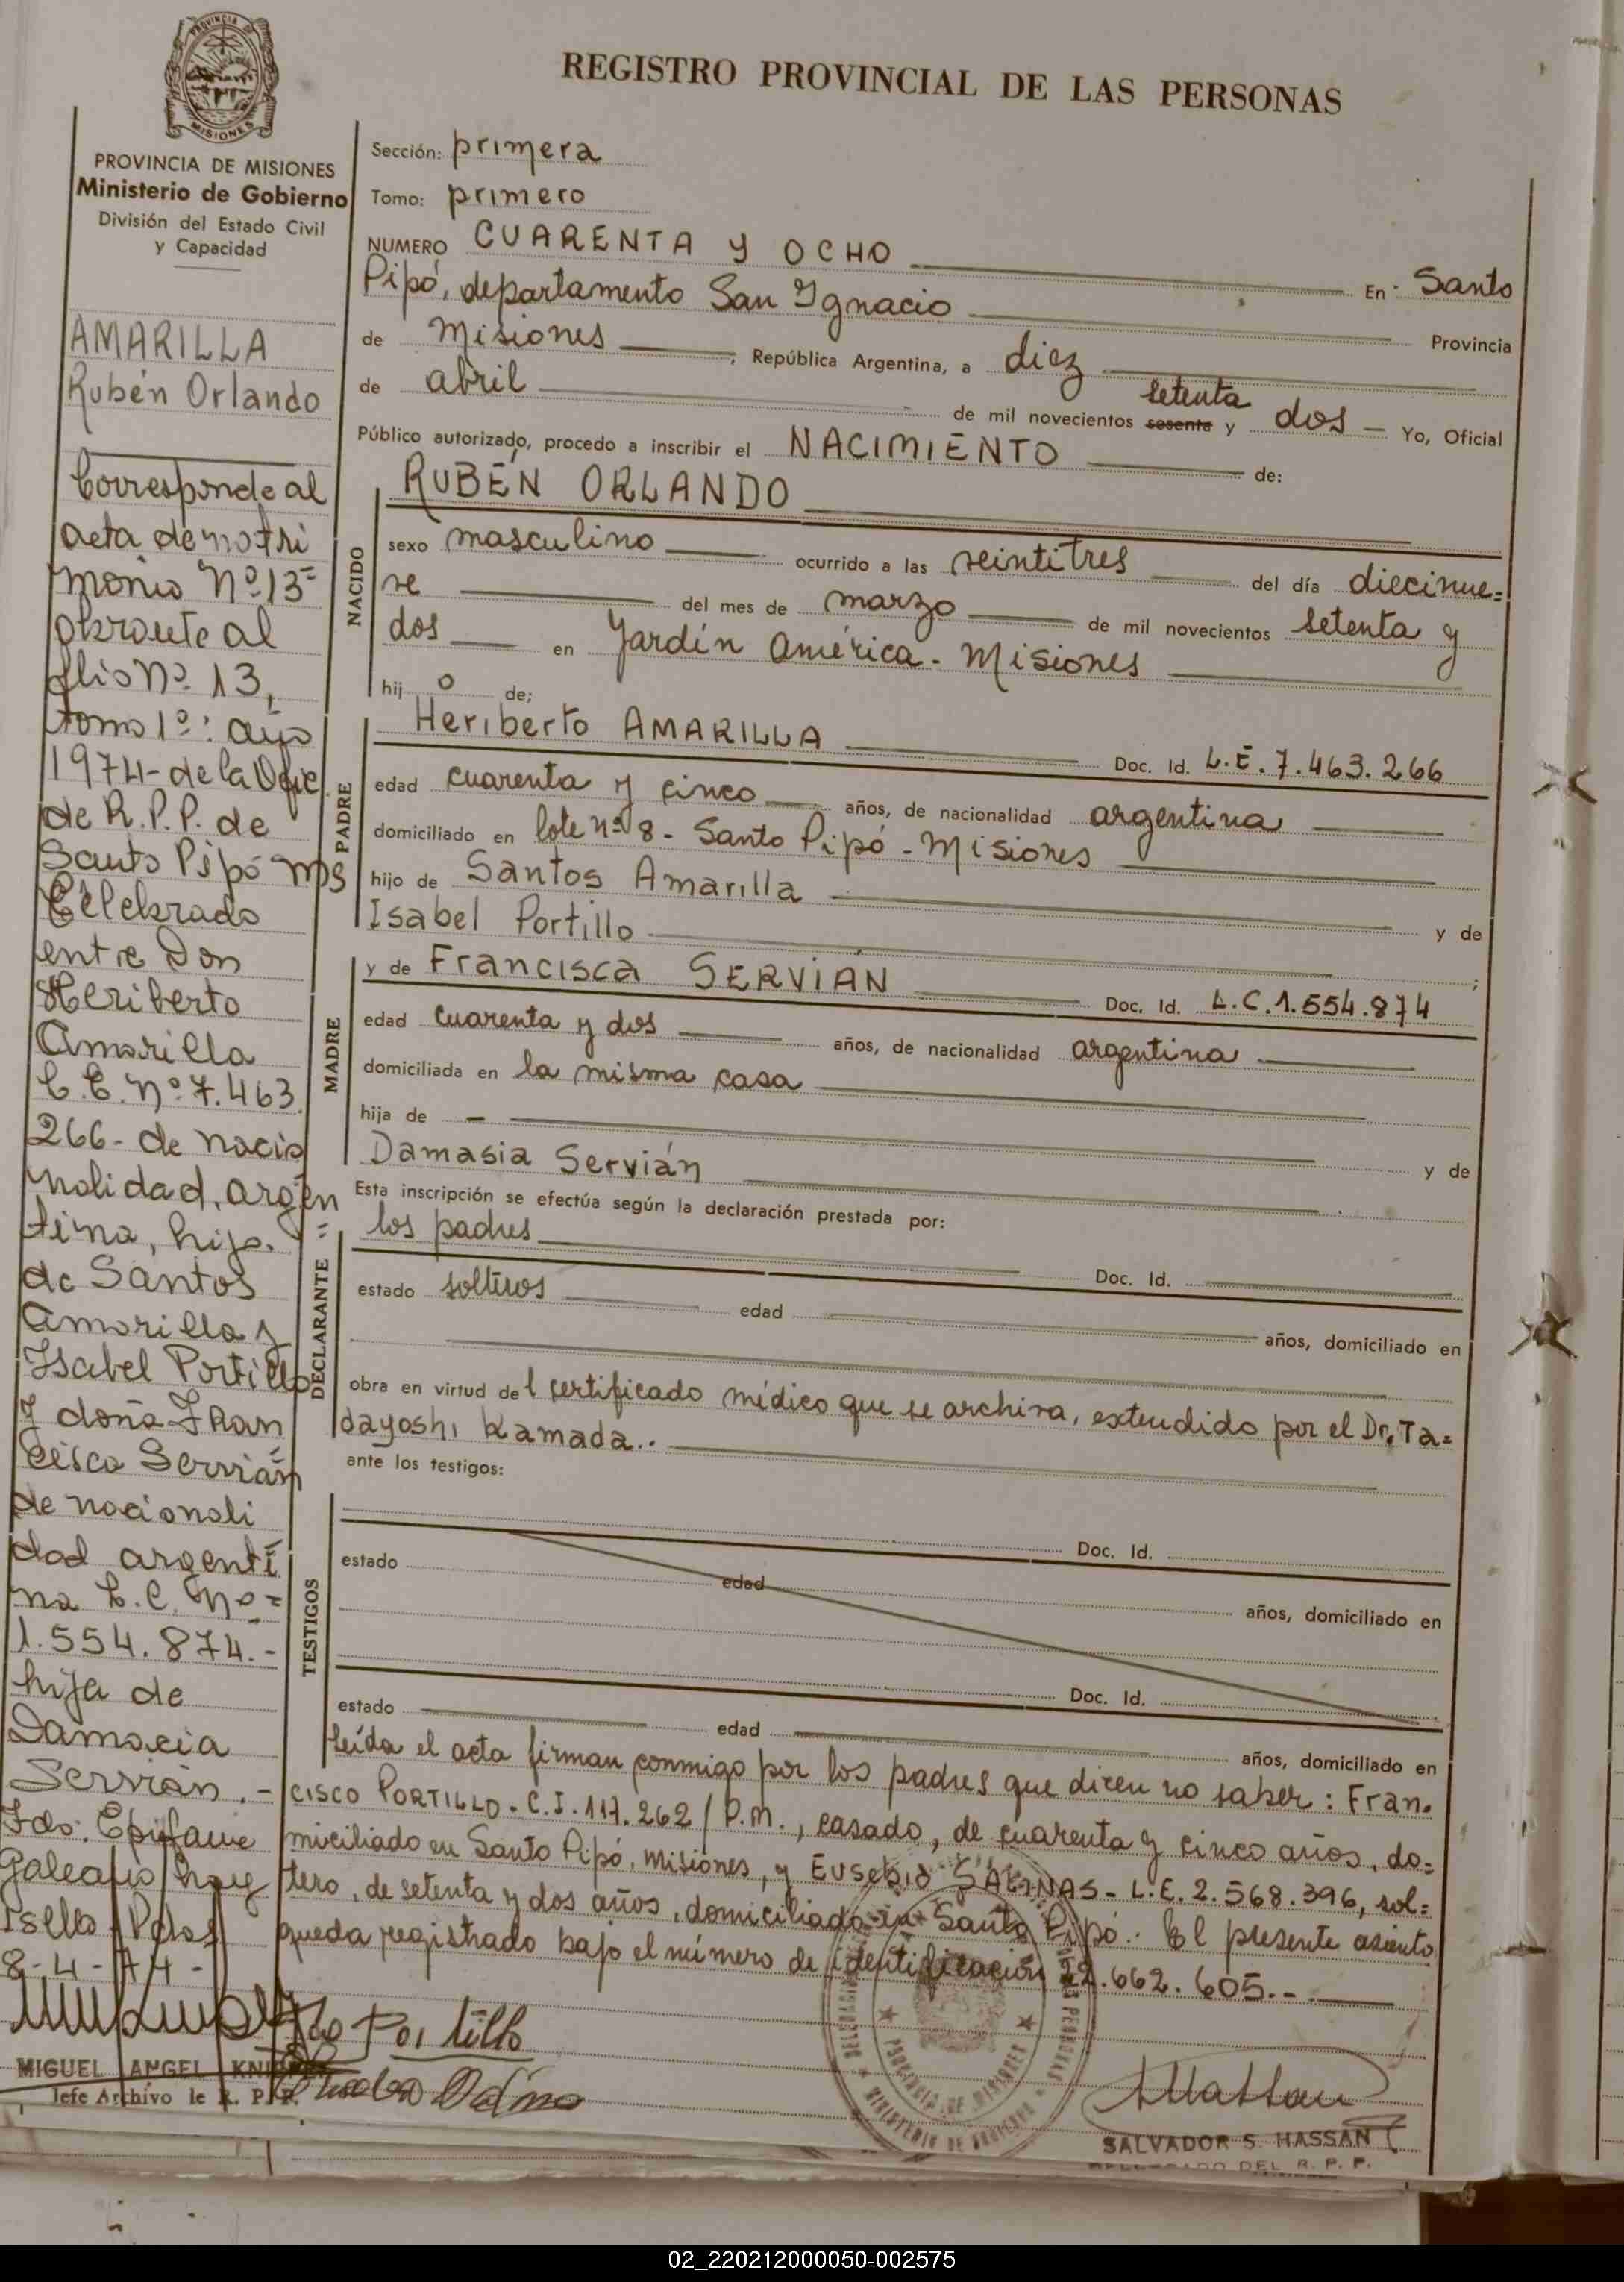 REGISTRO PROVINCIAL DE LAS PERSONAS
PROVINCIA DE
MISIONES
PROVINCIA DE MISIONES
Ministerio de Gobierno
División del Estado Civil
y Capacidad
AMARILLA
Rubén Orlando
Corresponde al
acta de matri
monio Nº 13=
obrante al
folio Nº 13,
tomo 1º: año
1974- de la Ofic.
de R.P.P. de
Santo Pipó Mps
Celebrado
entre Don
Heriberto
Amarilla
L.E. Nº 7.463.
266- de nacio
nalidad, argen
tina, hijo. =
de Santos
Amarilla y
Isabel Portillo
y doña Fran
cisca Servián
de nacionali
dad argenti
na L.C. Nº =
1.554.874.-
hija de
Damacia
Servián.-
Fdo: Epifanie
Galeano hay
Sello
8-4-74-
MIGUEL ANGEL
Jefe Archivo le R. P. P.
Sección: primera
Tomo: primero
NUMERO CUARENTA y OCHO En Santo
Pipó, departamento San Ignacio Provincia
de Misiones, República Argentina, a diez
de abril de mil novecientos sesenta setenta y dos — Yo, Oficial
Público autorizado, procedo a inscribir el NACIMIENTO de:
NACIDO
RUBÉN ORLANDO
sexo masculino ocurrido a las veintitres del día diecinue=
ve del mes de marzo de mil novecientos setenta y
dos en Jardín América - Misiones
hij o de;
PADRE
Heriberto AMARILLA Doc. Id. L.E. 7.463.266
edad cuarenta y cinco años, de nacionalidad argentina
domiciliado en lote nº 8 - Santo Pipó - Misiones
hijo de Santos Amarilla y de
Isabel Portillo ;
MADRE
y de Francisca SERVIAN Doc. Id. L.C. 1.554.874
edad cuarenta y dos años, de nacionalidad argentina
domiciliada en la misma casa
hija de — y de
Damasia Servián
Esta inscripción se efectúa según la declaración prestada por:
DECLARANTE
los padres Doc. Id.
estado solteros edad años, domiciliado en
obra en virtud del certificado médico que se archiva, extendido por el Dr. Ta=
dayoshi Kamada..
ante los testigos:
TESTIGOS
Doc. Id.
estado edad años, domiciliado en
Doc. Id.
estado edad años, domiciliado en
leída el acta firman conmigo por los padres que dicen no saber: Fran.
cisco PORTILLO - C.I. 117.262/P.M., casado, de cuarenta y cinco años, do=
miciliado en Santo Pipó, Misiones, y EUSEBIO SALINAS - L.E. 2.568.396, sol=
tero, de setenta y dos años, domiciliado en Santo Pipó.. El presente asiento
queda registrado bajo el número de identificación 12.662.605.-.
Fco Portillo
PROVINCIA DE MISIONES
MINISTERIO DE GOBIERNO
SALVADOR S. HASSAN
DELEGADO DEL R. P. P.
02_220212000050-002575